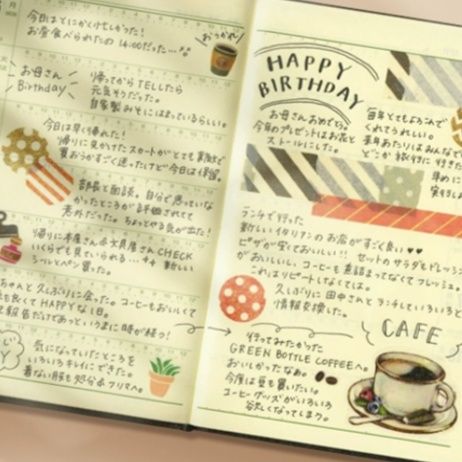 今日はとにかく忙しかった!
お昼食べられたの 14:00だった…
おつかれ!
お母さん
Birthday
帰ってからTELLたら
元気そうだった。
自家製みそにはまっているらしい。
今日は早く帰れた!
帰りに見かけたスカートがとても素敵で
買おうかすごく迷ったけど今日は保留。
部長と面談。自分で思っていな
かったところが評価されてて
意外だった。ちょっとやる気が出た!
帰りに本屋さん、文具屋さんCHECK
いくらでも見ていられる…
新しい
シールとペン買った。
ちゃんと久しぶりに会った。コーヒーもおいしくて
も良くてHAPPYな1日。
報告だけであっというまに時が経つ!
気になっていたところを
いろいろキレイにできた。
着ない服も処分&フリマへ。
HAPPY
BIRTHDAY
お母さんおめでとう。
今年のプレゼントはお花と
ストールにした。
毎年とてもよろこんで
くれてうれしい。
来年あたりはみんなで
どこか旅行に行きた
早めに
ランチで行った
新しいイタリアンのお店がすごく良い♥♥
ピザが宝ておいしい!! セットのサラダもドレッシ
がおいしい。コーヒーも煮詰まってなくてフレッシュ。
これはリピートしなくては。
久しぶりに田中さんとランチしていろいろと
情報交換した。
CAFE
行ってみたかった
GREEN BOTTLE COFFEEへ。
おいしかったなぁ。
今度は豆も買いたい。
コーヒーグッズがいろいろ
欲しくなってしまう。